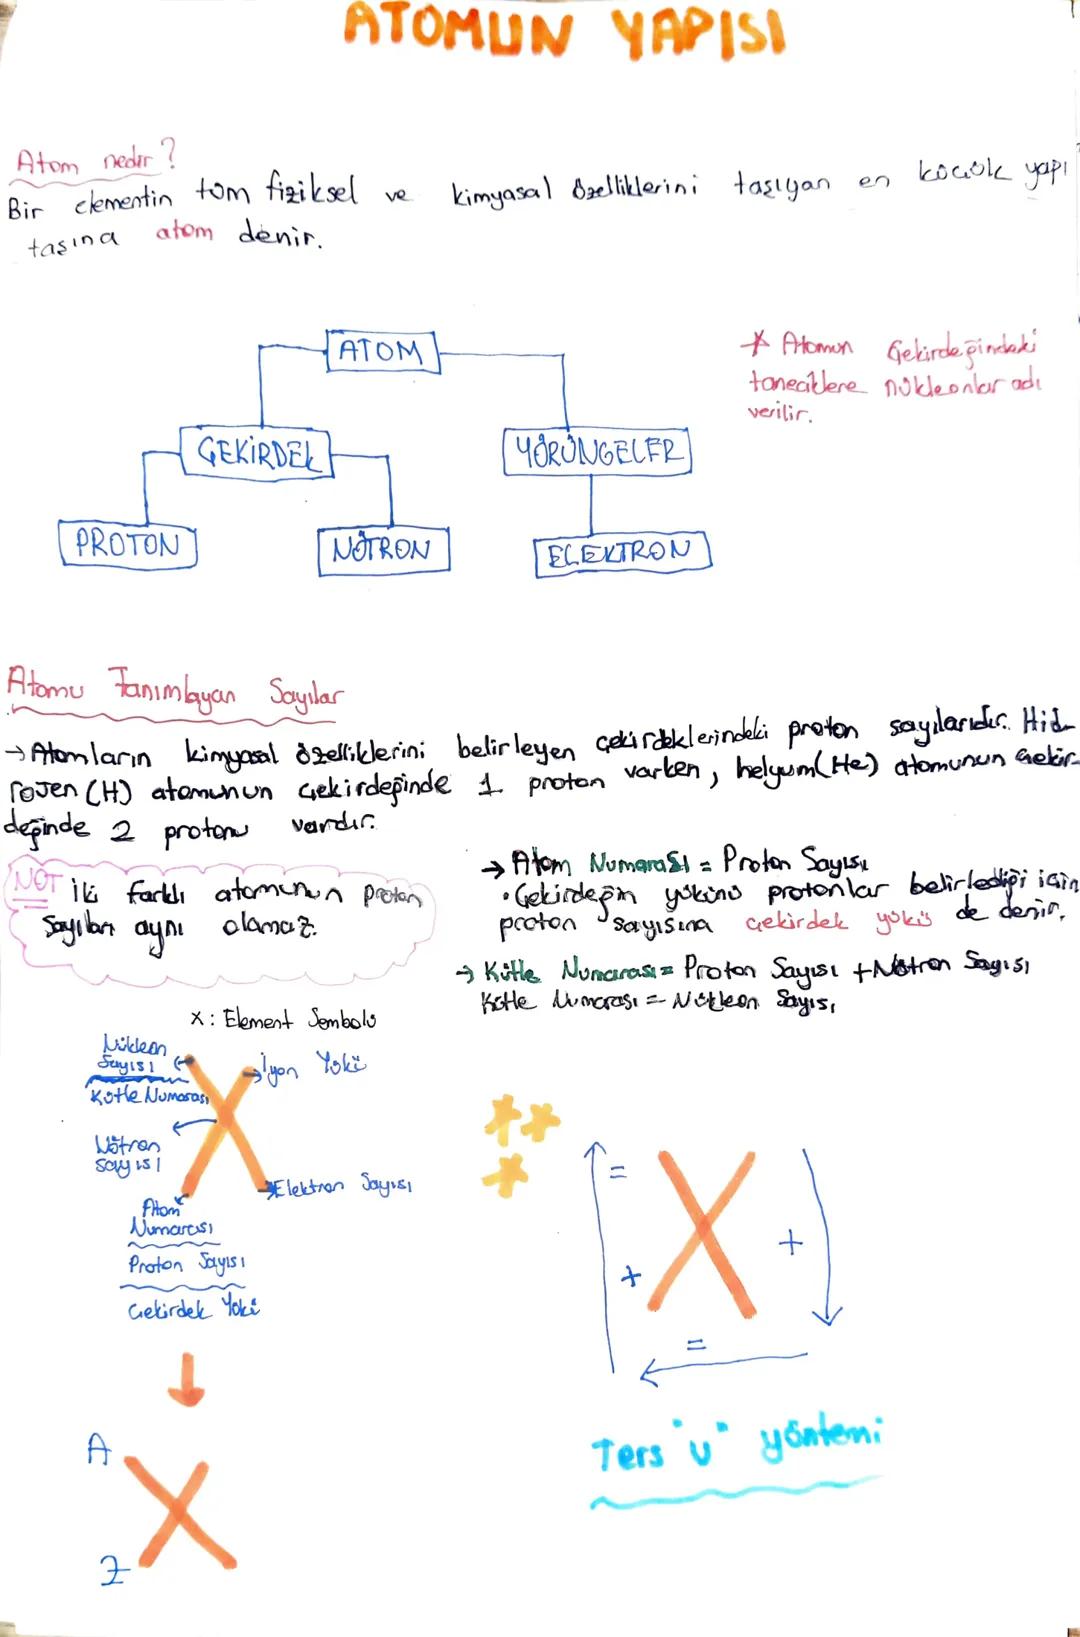 ATOMUN YAPISI
Atom nedir?
Bir elementin tüm fiziksel ve kimyasal özelliklerini taşıyan en küçük yapı
taşına atom denir.
ATOM
ÇEKİRDEK
YÖRÜNGELER
PROTON
NÖTRON
ELEKTRON
* Atomun çekirdeğindeki
taneciklere nükleonlar adı
verilir.
Atomu Tanımlayan Sayılar
→ Atomların kimyasal özelliklerini belirleyen çekirdeklerindeki proton sayılarıdır. Hid-
rojen (H) atomunun çekirdeğinde 1 proton varken, helyum(He) atomunun çekir-
değinde 2 protonu vardır.
NOT İki farklı atomunun proton
sayıları aynı olamaz.
→ Atom Numarası = Proton Sayısı
• Çekirdeğin yükünü protonlar belirlediği için
proton sayısına çekirdek yükü de denir.
→ Kütle Numarası = Proton Sayısı + Nötron Sayısı
Kütle Numarası = Nükleon Sayısı
X: Element Sembolü
Nükleon
Sayısı
Kütle Numarası
İyon Yükü
Nötron
sayısı
Elektron Sayısı
Atom
Numarası
Proton Sayısı
Çekirdek Yükü
A
X
Z
***
=
X
+
+
=
Ters "U" yöntemi